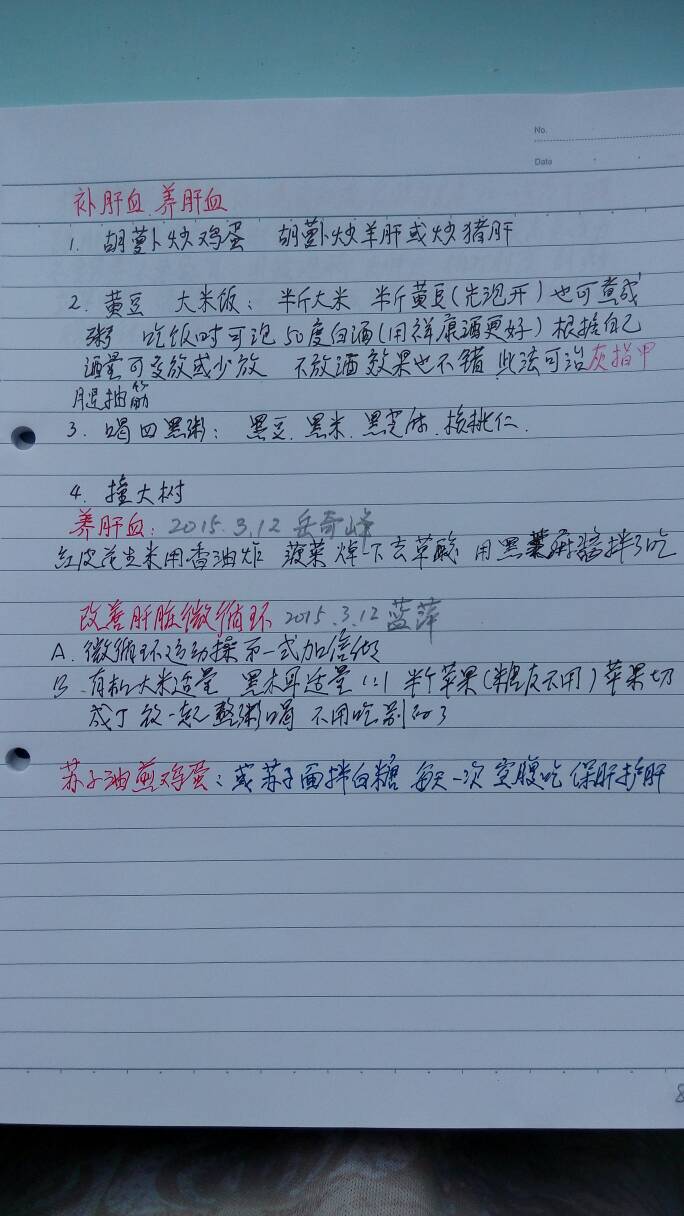 No.
Date
补肝血 养肝血
1. 胡萝卜炒鸡蛋 胡萝卜炒羊肝或炒猪肝
2. 黄豆 大米饭: 半斤大米 半斤黄豆(先泡开)也可煮成
粥 吃饭时可泡50度白酒(用祥康酒更好)根据自己
酒量可多放或少放 不放酒效果也不错 此法可治灰指甲
腿抽筋
3. 喝四黑粥: 黑豆. 黑米. 黑芝麻. 核桃仁.
4. 撞大树
养肝血: 2015.3.12 岳奇峰
红皮花生米用香油炸 菠菜焯下去草酸 用黑芝麻酱拌了吃
改善肝脏微循环 2015.3.12 蓝萍
A. 微循环运动操第一式加倍做
B. 有机大米适量 黑木耳适量 1:1 半个苹果(糖友不用)苹果切
成丁放一起熬粥喝 不用吃别的了
苏子油煎鸡蛋: 或苏子面拌白糖 每天一次 空腹吃 保肝护肝
8